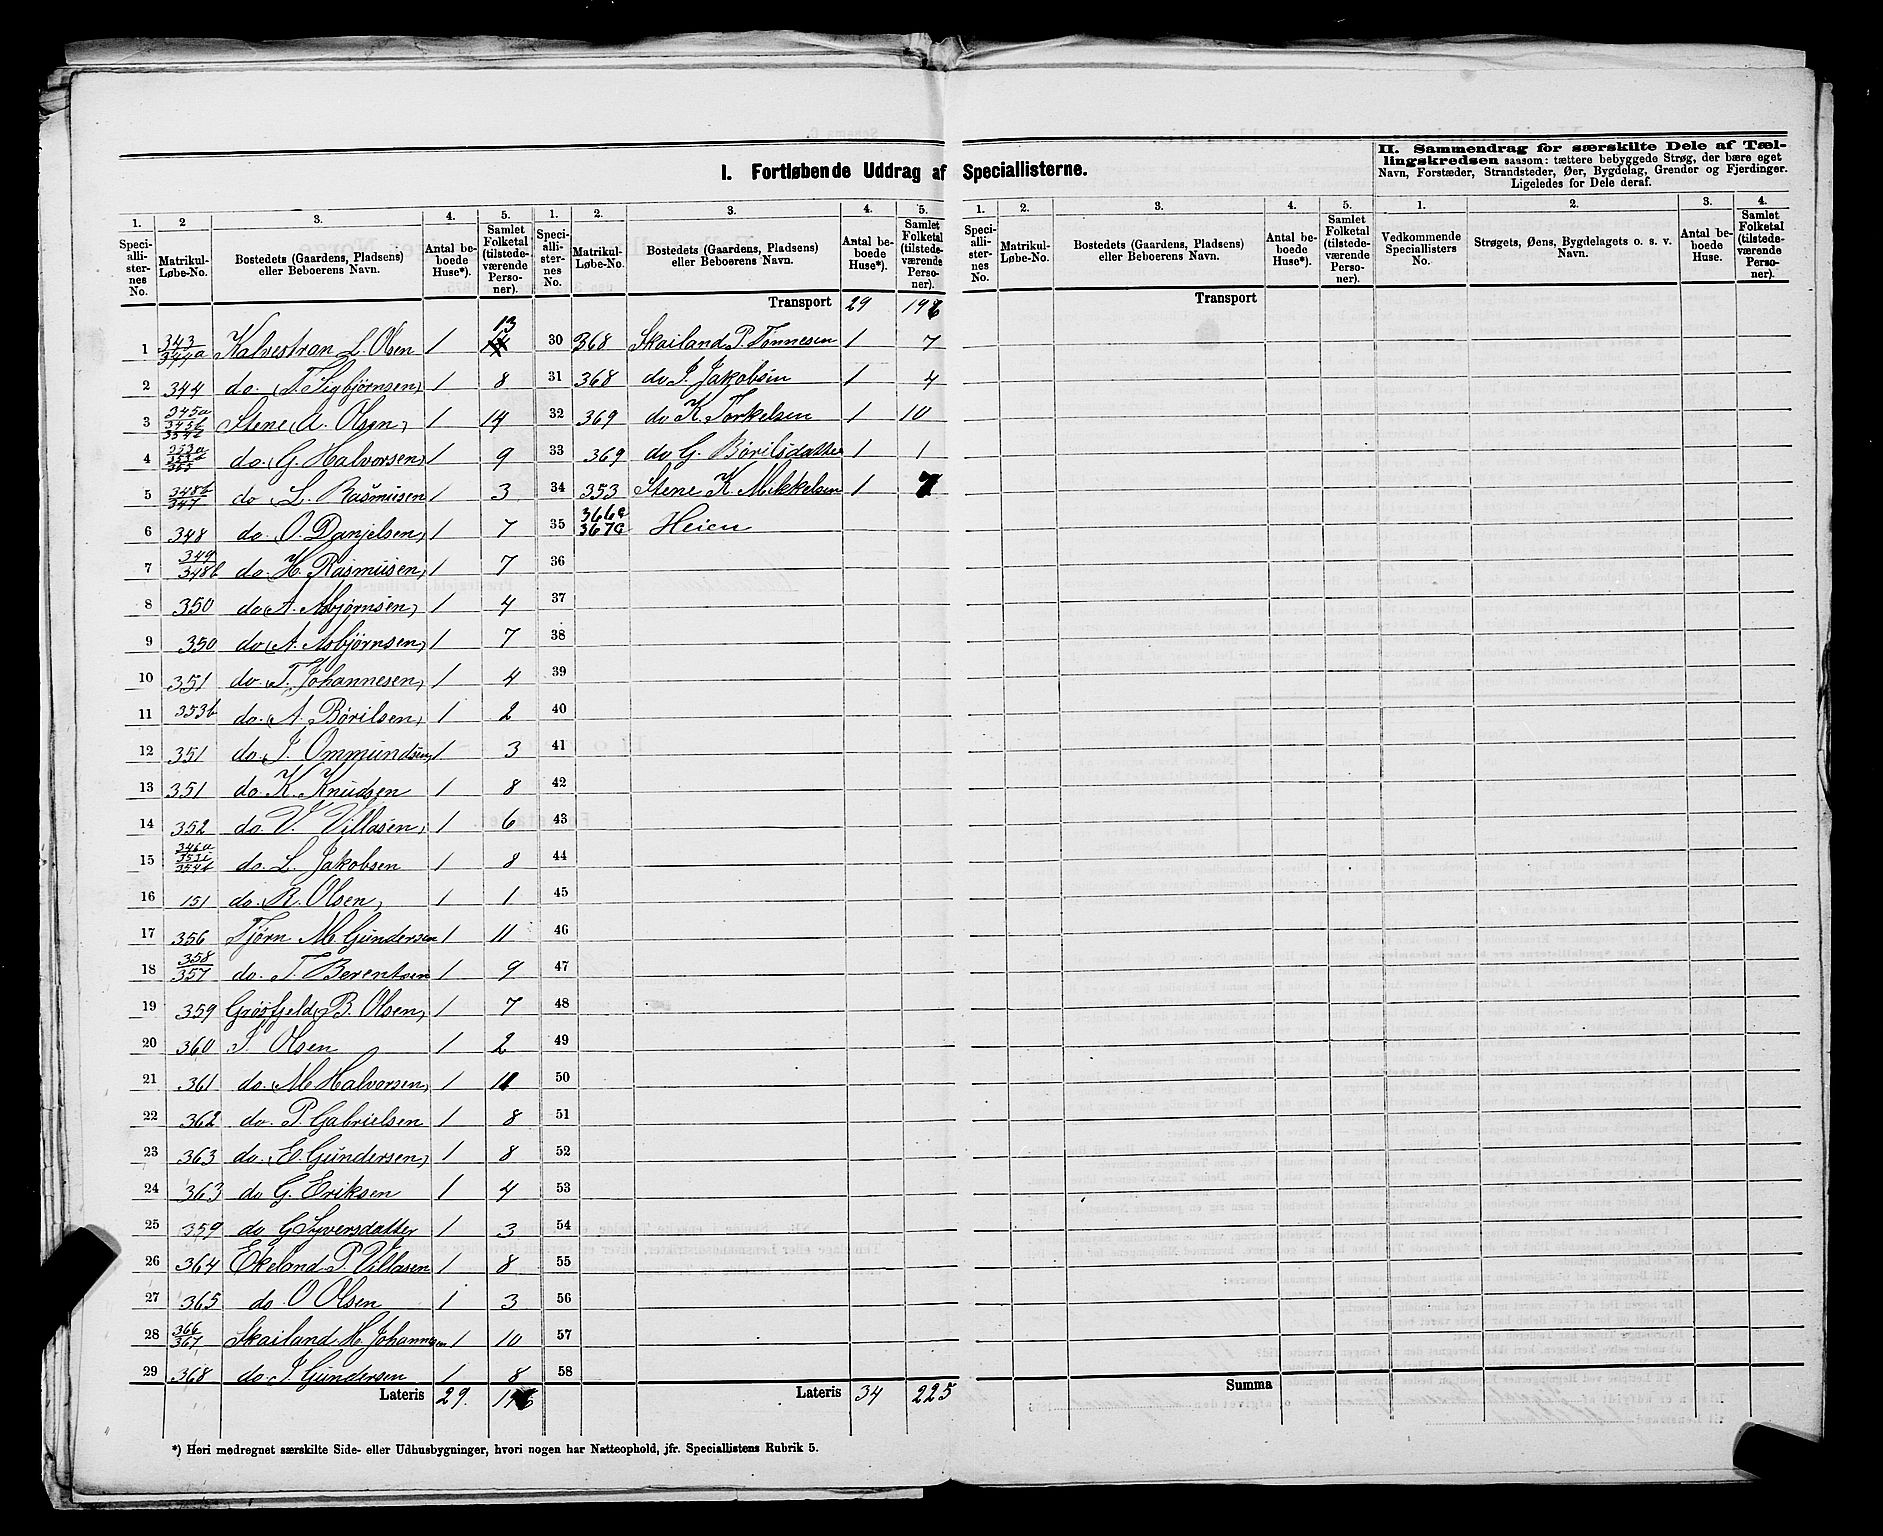 I. Fortløbende Uddrag af Speciallisterne.
II. Sammendrag for særskilte Dele af Tæl-
lingskredsen saasom: tættere bebyggede Strøg, der bære eget
Navn, Forstæder, Strandsteder, Øer, Bygdelag, Grender og Fjerdinger.
Ligeledes for Dele deraf.
1. 2 3. 4. 5. 1. 2. 3. 4. 5. 1. 2. 3. 4. 5. 1. 2. 3. 4.
Speci-alli-ster-nes No. Matrikul-Løbe-No. Bostedets (Gaardens, Pladsens) eller Beboerens Navn. Antal be-boede Huse*). Samlet Folketal (tilstede-værende Perso-ner).
Speci-alli-ster-nes No. Matrikul-Løbe-No. Bostedets (Gaardens, Pladsens) eller Beboerens Navn. Antal be-boede Huse*). Samlet Folketal (tilstede-værende Perso-ner).
Speci-alli-ster-nes No. Matrikul-Løbe-No. Bostedets (Gaardens, Pladsens) eller Beboerens Navn. Antal be-boede Huse*). Samlet Folketal (tilstede-værende Perso-ner).
Vedkommende Speciallisters No. Strøgets, Øens, Bygdelagets o. s. v. Navn. Antal be-boede Huse. Samlet Folketal (tilstede-værende Perso-ner).
1 343/344a Kalvestran L. Olsen 1 13
2 344 do. (T. Sigbjørnsen) 1 8
3 345a/345b/354b Stene (A. Olsen) 1 14
4 353a/353d/365 do. (G. Halvorsen) 1 9
5 348b/347 do L. Rasmusen 1 3
6 348 do. O. Danjelsen, 1 7
7 349/348b do. (H. Rasmusen) 1 7
8 350 do (A. Asbjørnsen) 1 4
9 350 do (A. Asbjørnsen) 1 7
10 351 do. (T. Johannesen) 1 4
11 353b do. A. Børilsen, 1 2
12 351 do. J. Ommundsen 1 3
13 351 do. K. Knudsen 1 8
14 352 do. V. Villasen, 1 6
15 346a/353i/354b do. L. Jakobsen 1 8
16 151 do. R. Olsen, 1 1
17 356 Tjørn M. Gundersen 1 11
18 358/357 do. T. Berentsen 1 9
19 359 Grøsfjeld (B. Olsen) 1 7
20 360 T. Olsen 1 2
21 361 do. (M. Halvorsen) 1 11
22 362 do. P. Gabrielsen 1 8
23 363 do. (E. Gundersen) 1 8
24 363 do G. Eriksen 1 4
25 359 do G Syversdatter 1 3
26 364 Ekeland P. Villasen 1 8
27 365 do. O Olsen 1 3
28 366/367 Skailand H. Johannesen 1 10
29 368 do. J. Gundersen 1 8
Lateris 29. 196
Transport 29 196
30 368 Skailand P. Tønnesen 1 7
31 368 do J. Jakobsen 1 4
32 369 do K. Torkelsen 1 10
33 369 do G. Børilsdatter 1 1
34 353 Stene K. Mikkelsen 1 7
35 366c 367c Heien
36
37
38
39
40
41
42
43
44
45
46
47
48
49
50
51
52
53
54
55
56
57
58
Lateris 34 225
Transport
Summa
*) Heri medregnet særskilte Side- eller Udhusbygninger, hvori nogen har Natteophold, jfr. Speciallistens Rubrik 5.